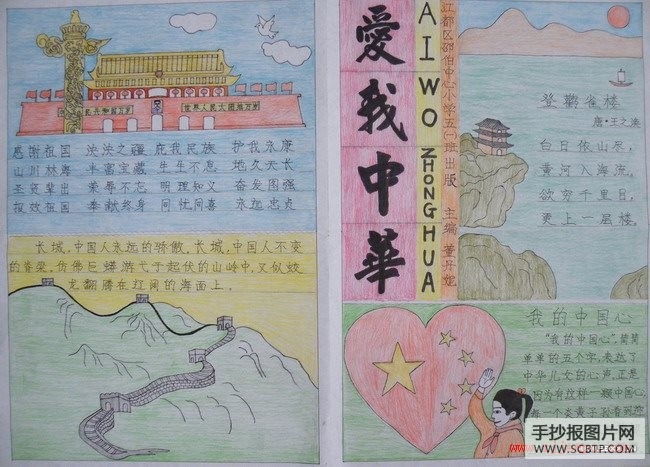 世界人民大团结万岁
感谢祖国 泱泱之疆 庇我民族 护我永康
山川林海 丰富宝藏 生生不息 地久天长
圣贤辈出 荣辱不忘 明理知义 奋发图强
报效祖国 奉献终身 同忧同喜 永远忠贞
长城,中国人永远的骄傲。长城,中国人不变
的脊梁。仿佛巨蟒游弋于起伏的山岭中,又似蛟
龙翻腾在辽阔的海面上。
愛我中華
AI WO ZHONG HUA
江都区邵伯中心小学五(一)班出版 主编 董丹妮
登鹳雀楼
唐·王之涣
白日依山尽,
黄河入海流。
欲穷千里目,
更上一层楼。
我的中国心
"我的中国心",简简
单单的五个字,表达了
中华儿女的心声。正是
因为有这样一颗中国心,
每一个炎黄子孙看到您
手抄报图片网
WWW.SCBTP.COM